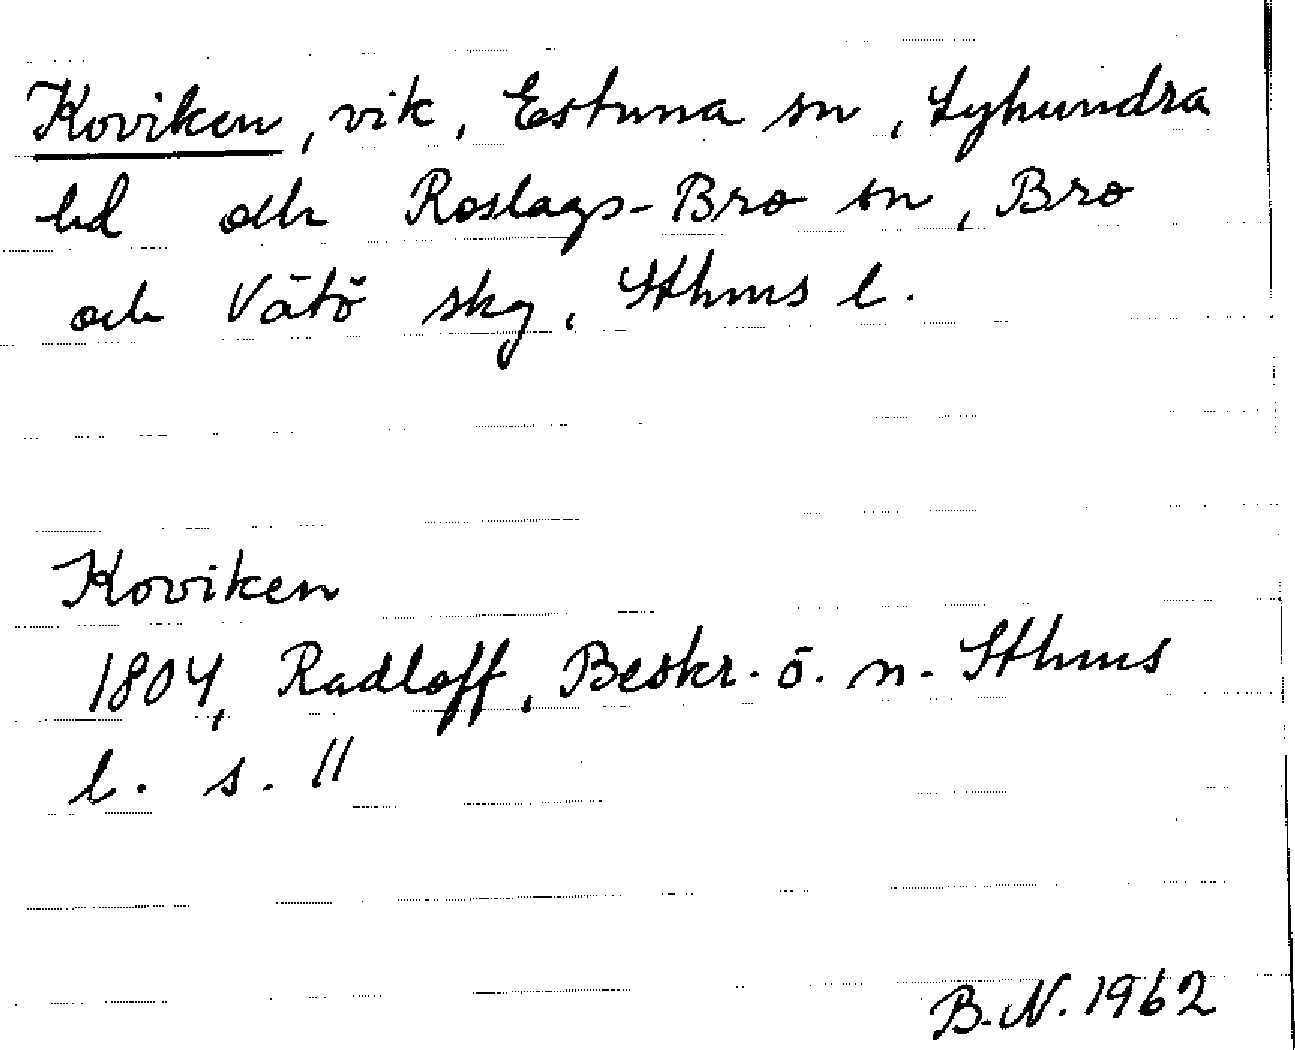 Koviken, vik, Estuna sn, Lyhundra
hd och Roslags-Bro sn, Bro
och Vätö skg, Sthms l.
Koviken
1804, Radloff, Beskr. ö. n. Sthms
l. s. 11
B.N. 1962